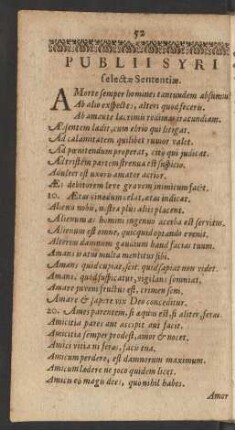 52
PUBLII SYRI
selectæ Sententiæ.
A Morte semper homines tantundem absumus
Ab alio exspectes, alteri quod feceris.
Ab amante lacrimis redimas iracundiam.
Absentem ladit, cum ebrio qui litigat.
Ad calamitatem quilibet rumor valet.
Ad pœnitendum properat, cito qui judicat.
Ad tristem partem strenua est suspicio.
Adulter est uxoris amator acrior.
Æs debitorem leve gravem inimicum facit.
10. Ætas cinædum celat, ætas indicat.
Aliena nobis, nostra plus aliis placent.
Alienum æs homini ingenuo acerba est servitus.
Alienum est omne, quicquid optando evenit.
Alterius damnum gaudium haud facias tuum.
Amans iratus multa mentitus sibi.
Amans quid cupiat, scit, quid sapiat non videt.
Amans, quid suspicatur, vigilans somniat,
Amare juveni fructus est, crimen seni,
Amare & sapere vix Deo conceditur.
20. Ames parentem, si æquus est, si aliter, feras.
Amicitia pares aut accipit aut facit.
Amicitia semper prodest, amor & nocet,
Amici vitia ni feras, facis tua.
Amicum perdere, est damnorum maximum.
Amicum lædere ne joco quidem licet.
Amico
Amor